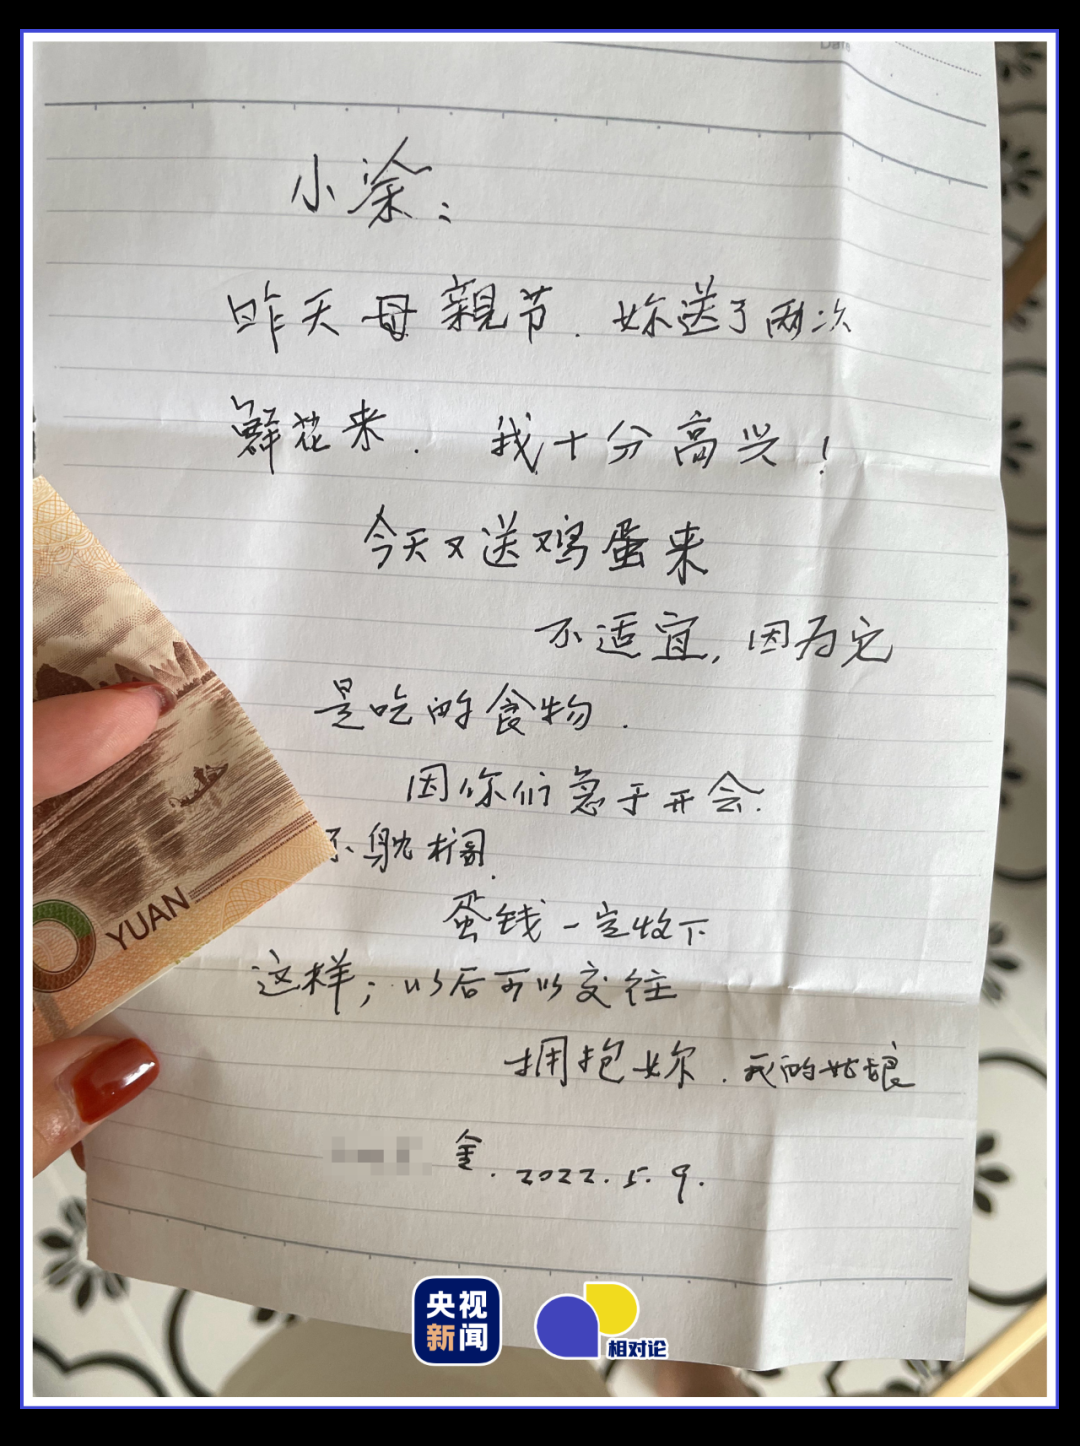 Date
小涂：
昨天母親节．妳送了两次
鲜花来．我十分高兴！
今天又送鸡蛋来
不适宜，因为它
是吃的食物．
因你们急于开会．
不躭搁．
蛋钱一定收下
这样；以后可以交往
拥抱妳．我的姑娘
金．2022.5.9.
YUAN
央视
新闻
相对论